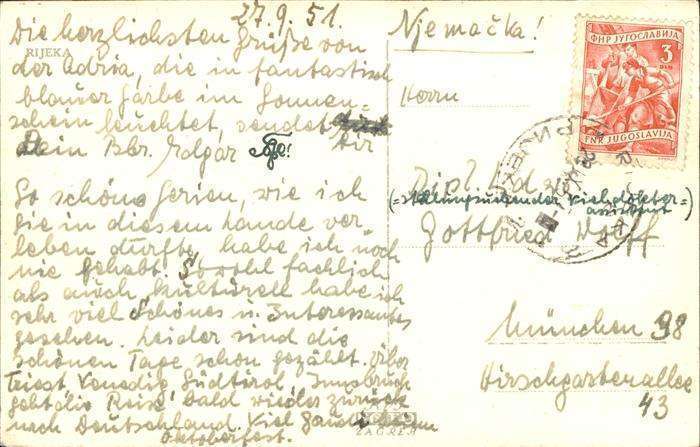 27.9.51.
RIJEKA
Die herzlichsten Grüße von
der Adria, die in fantastisch
blauer Farbe im Sonnen=
schein leuchtet, sendet
Dir
Dein Bbr. Edgar
So schöne Ferien, wie ich
sie in diesem Lande ver-
leben durfte, habe ich noch
nie gehabt. Sowohl fachlich
als auch kulturell habe ich
sehr viel Schönes u. Interessantes
gesehen. Leider sind die
schönen Tage schon gezählt. Über
Triest Venedig Südtirol, Innsbruck
geht die Reise bald wieder zurück
nach Deutschland. Viel Gaudi beim
Oktoberfest.
ZAGREB
Njemačka!
ФНР ЈУГОСЛАВИЈА
3
DIN
FNR JUGOSLAVIJA
Herrn
Dipl.
Gottfried Wolff
München 38
Hirschgartenallee
43